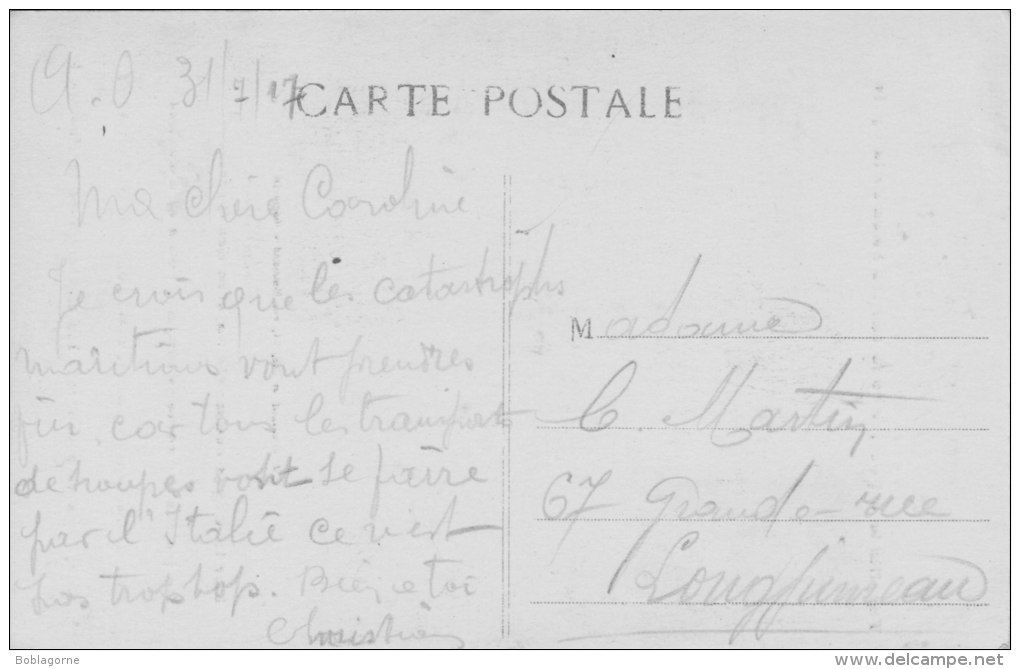 A.O 31/7/17
CARTE POSTALE
Ma chère Caroline
Je crois que les catastrophs
maritimes vont prendres
fin, car tous les transports
de troupes vont se faire
par l'Italie ce n'est
pas trop top. Bien à toi
Christian
Madame
C. Martin
67 Grande-rue
Longjumeau
Boblagorne
www.delcampe.net